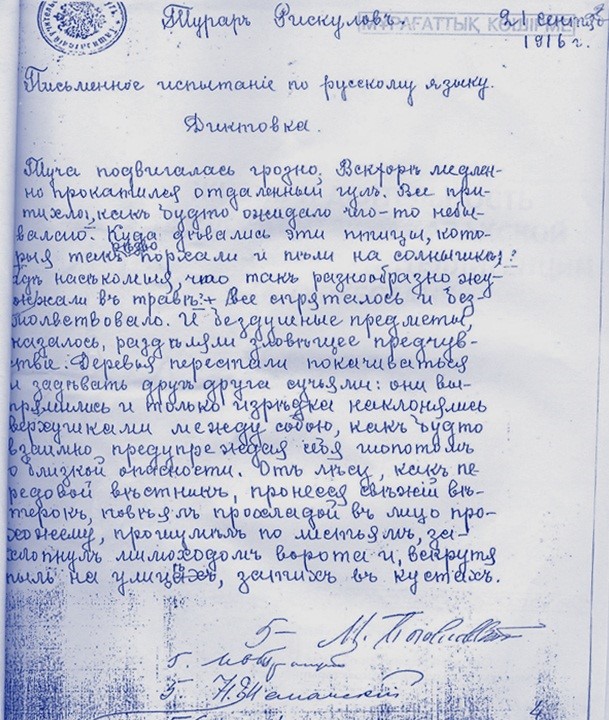 Тураръ Рискуловъ.
21 сентяб
МҰРАҒАТТЫҚ КӨШІРМЕ
1916 г.
Письменное испытаніе по русскому языку.
Диктовка.
Туча подвигалась грозно, Вскорѣ медлен-
но прокатился отдаленный гулъ. Все при-
тихло, какъ будто ожидало что-то небы-
валаго. Куда дѣвались эти птицы, кото-
рѣзво
рыя такъ порхали и пѣли на солнышкѣ?
гдѣ насѣкомыя, что такъ разнообразно жу-
жжали въ травѣ?+ Все спряталось и без
молвствовало. И бездушные предметы,
казалось, раздѣляли зловѣщее предчув-
ствіе. Деревья перестали покачиваться
и задѣвать другъ друга сучьями: они вы-
прямились и только изрѣдка наклонялись
верхушками между собою, какъ будто
взаимно предупреждая себя шопотомъ
о близкой опасности. Отъ лѣсу, какъ пе-
редовой вѣстникъ, пронесся свѣжій вѣ-
терокъ, повѣялъ прохладой въ лицо про-
хожему, прошумѣлъ по листьямъ, за-
хлопнулъ мимоходомъ ворота и, вскрутя
пыль на улицахъ, затихъ въ кустахъ.
5-
5.
5